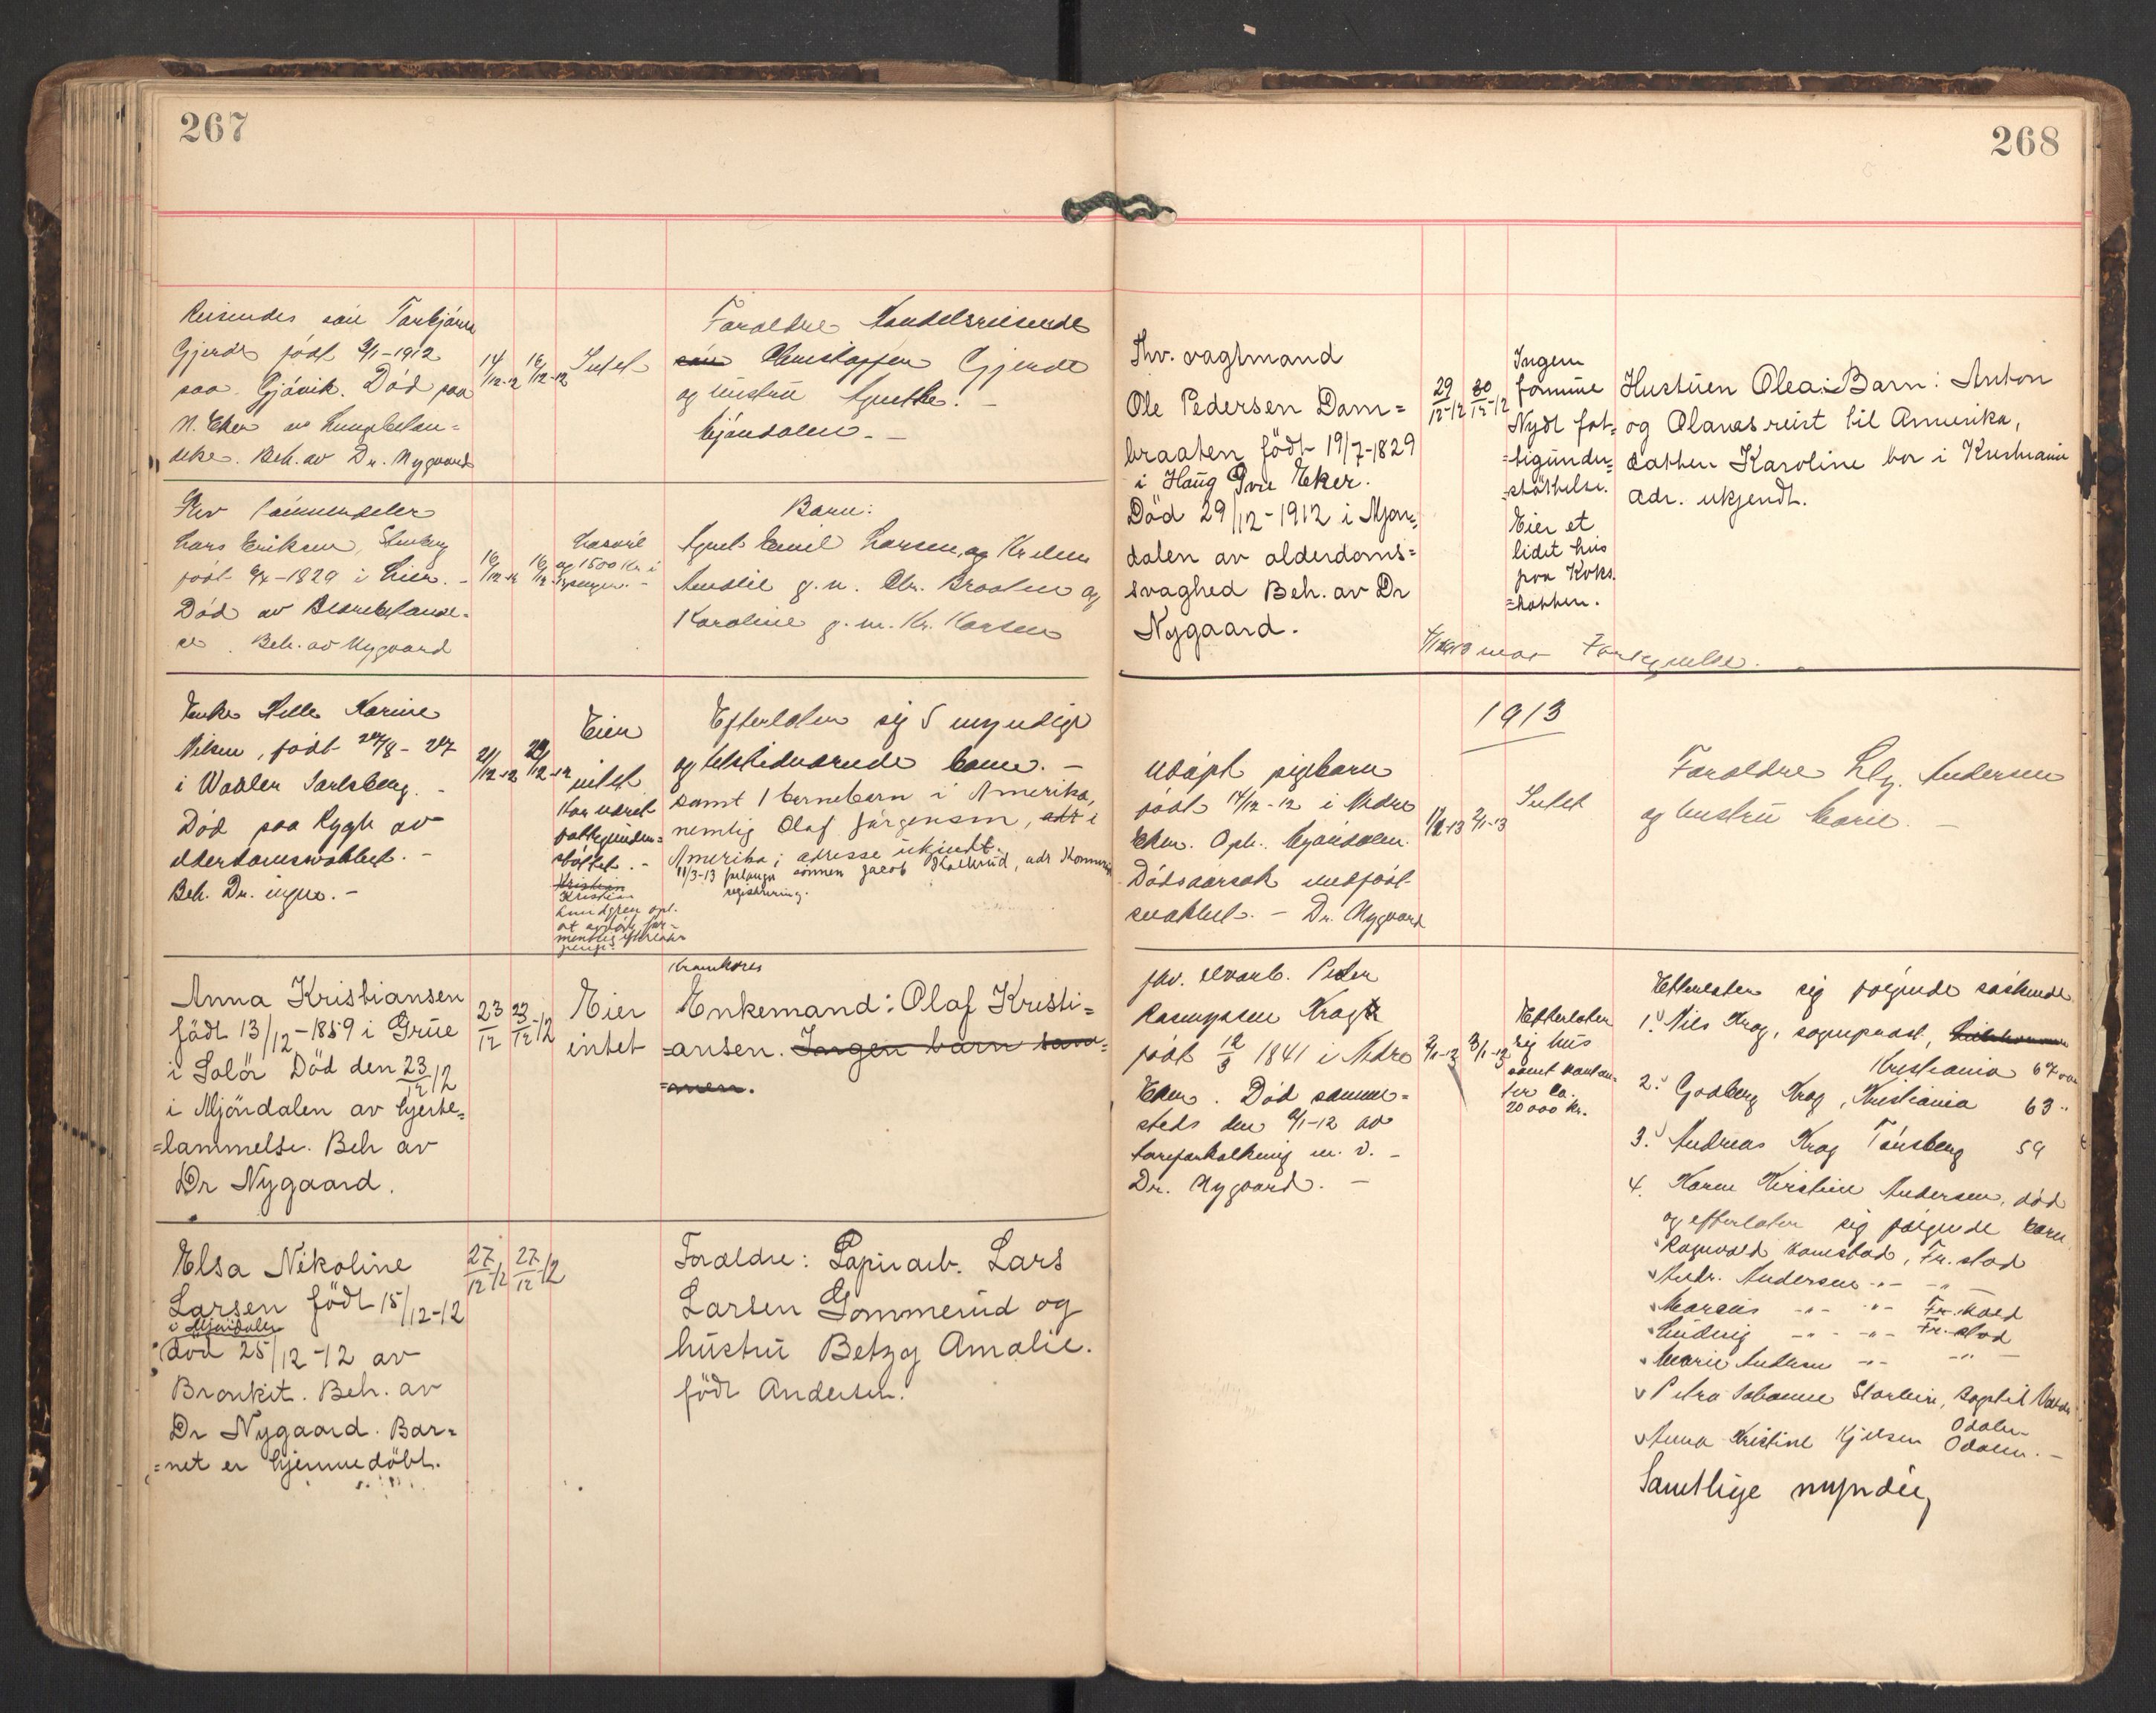 267
Reisendes sön Torbjörn
Gjerde född 9/1-1912
paa Gjövik. Död paa
N. Eker av Lungebetæn=
delse. Beh. av Dr. Nygaard
14/12-12 16/12-12 Intet
Foraldre Handelsreisende
Christoffer Gjerde
og hustru Agnethe. -
Mjöndalen. -
Lars Eriksen
födt 1829 i Lier. -
Död av
Beh. av Nygaard
16/12-12
og 1500 Kr. i
Barn:
Emil Larsen, og
Amalie g. m. Chr. Braaten og
Karoline g. m. Kr. Karsen
Enke Helle Karine
Nilsen, födt 27/8-27
i Waaler Jarlsberg. -
Död paa Rygh av
alderdomsvakhet. -
Beh. Dr. ingen. -
21/12-12
Eier
intet
Har været
fattigunder=
stöttet. -
Kristian
Kristian
Lundgren opl.
Efterlater sig 5 myndige
og tilstedeværende barn. -
samt 1 barnebarn i Amerika,
nemlig Olaf Jörgensen, alt i
Amerika; adresse ukjendt.
11/3-13 forlangte sönnen Jacob
registrering.
Anna Kristiansen
födt 13/12-1859 i Grue
i Solör Död den 23/12 12
i Mjöndalen av hjerte=
=lammelse. Beh av
Dr Nygaard.
23/12 23/12-12
Eier
intet
Enkemand: Olaf Kristi=
=ansen. Ingen barn sam=
=men.
Elsa Nikoline
Larsen födt 15/12-12
i Mjöndalen
död 25/12-12 av
Bronkit. Beh. av
Dr Nygaard. Bar=
=net er hjemmedöbt.
27/12-12 27/12-12
Foraldre: Papirarb. Lars
Larsen Gommerud og
hustru Betzy Amalie.
födt Andersen.
268
Fhv. vagtmand
Ole Pedersen Dam=
braaten födt 19/7-1829
i Haug Övre Eker.
Död 29/12-1912 i Mjön=
dalen av alderdoms=
svaghed Beh. av Dr
Nygaard.
29/12-12 30/12-12
Ingen
formue
Nydt fat=
=tigunder=
=støttelse.
Eier et
lidet hus
paa Koks=
=bakken.
Hustruen Olea: Barn: Anton
og Olavas reist til Amerika,
datter Karoline bor i Kristiania
adr. ukjendt.
1913
Udöpt pigebarn
födt 14/12-12 i Nedre
Eker. Oph. Mjöndalen.
Dödsaarsak medfödt
svakhet. - Dr. Nygaard
2/1-13
Intet
Foraldre Andersen
og hustru Marie. -
fhv. elvarb. Peder
Rasmussen Krogh
födt 12/3 1841 i Nedre
Eker. Död samme=
steds den 2/1-12 av
aareforkalkning m. v. -
Dr. Nygaard. -
2/1-13 3/1-13
Efterlater
sig hus
samt kontan=
ter ca.
20 000 kr.
Efterlater sig fölgende söskende
1. Nils Krog, sogneprest,
Kristiania 67 aar
2. Godberg Krog, Kristiania 63 "
3. Andreas Krog Tönsberg 59
4. Karen Kirstine Andersen, död
og efterlater sig fölgende barn
Ragnvald Kamstad, Fr. stad
Andr. Andersen -"- -"-
Marius -"- -"- Fr. stad
Ludvig -"- -"- Fr. stad
Marie Andersen -"- -"-
Petra Johanne
Odalen
Anna Kristine Kjelsen Odalen. -
Samtlige myndig